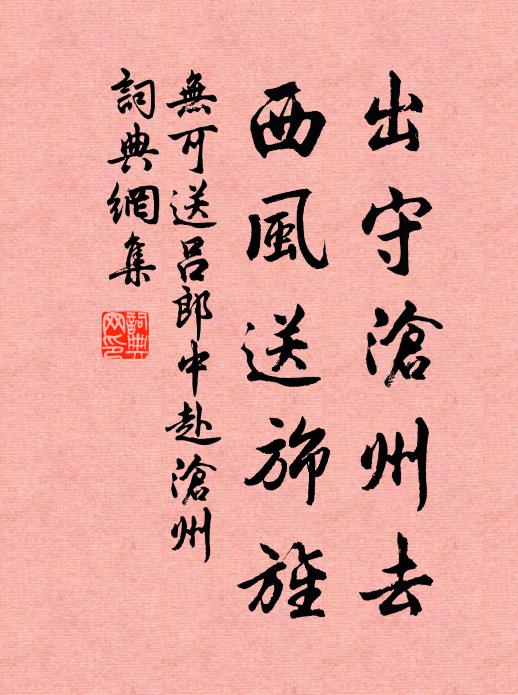 出守滄州去
西風送斾旌
無可送呂郎中赴滄州
詞典網集
詞典網印